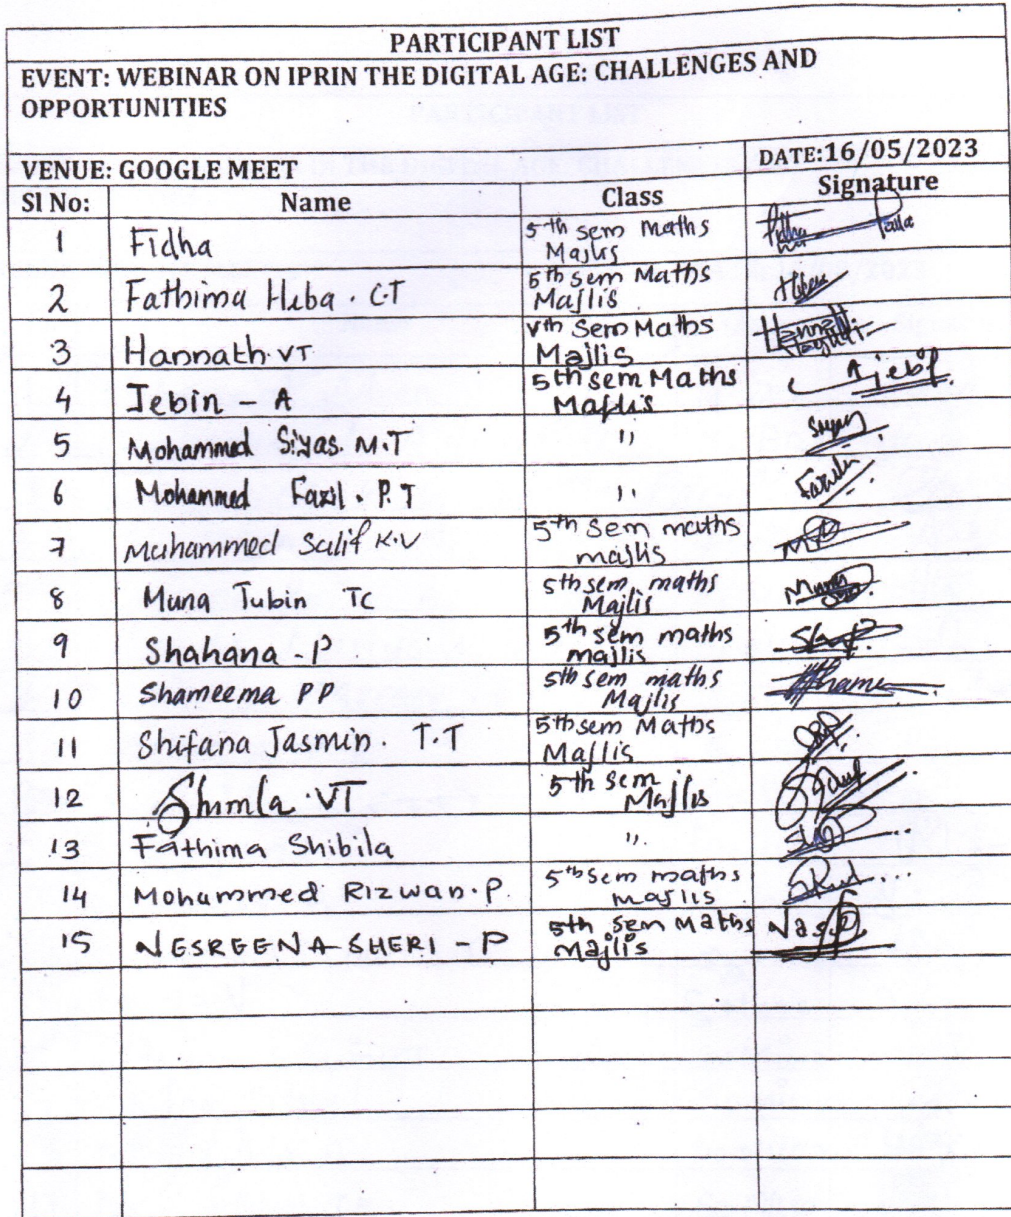 PARTICIPANT LIST
EVENT: WEBINAR ON IPRIN THE DIGITAL AGE: CHALLENGES AND
OPPORTUNITIES
VENUE: GOOGLE MEET DATE:16/05/2023
Sl No: Name Class Signature
1 Fidha 5th sem maths
Majlis
2 Fathima Hiba . CT 5th sem Maths
Majlis
3 Hannath VT Vth Sem Maths
Majlis
4 Jebin - A 5th sem Maths
Majlis
5 Mohammed Siyas. M.T ,,
6 Mohammed Fazil . P.T ,,
7 Muhammed Salif K.V 5th sem maths
majlis
8 Muna Tubin TC 5th sem maths
Majlis
9 Shahana - P 5th sem maths
majlis
10 Shameema PP 5th sem maths
Majlis
11 Shifana Jasmin . T.T 5th sem Maths
Majlis
12 Shimla . VT 5th sem
Majlis
13 Fathima Shibila ,,
14 Mohammed Rizwan . P. 5th sem maths
majlis
15 NESREENA SHERI - P 5th sem Maths
Majlis